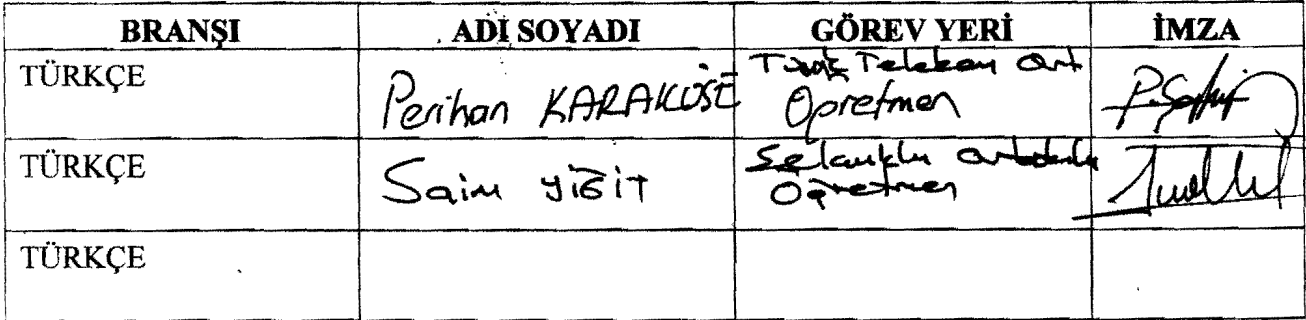 BRANŞI ADI SOYADI GÖREV YERİ İMZA
TÜRKÇE Perihan KARAKÖSE Türk Telekom Ort
Öğretmen
TÜRKÇE Saim YİĞİT Selçuklu Ortaokulu
Öğretmen
TÜRKÇE